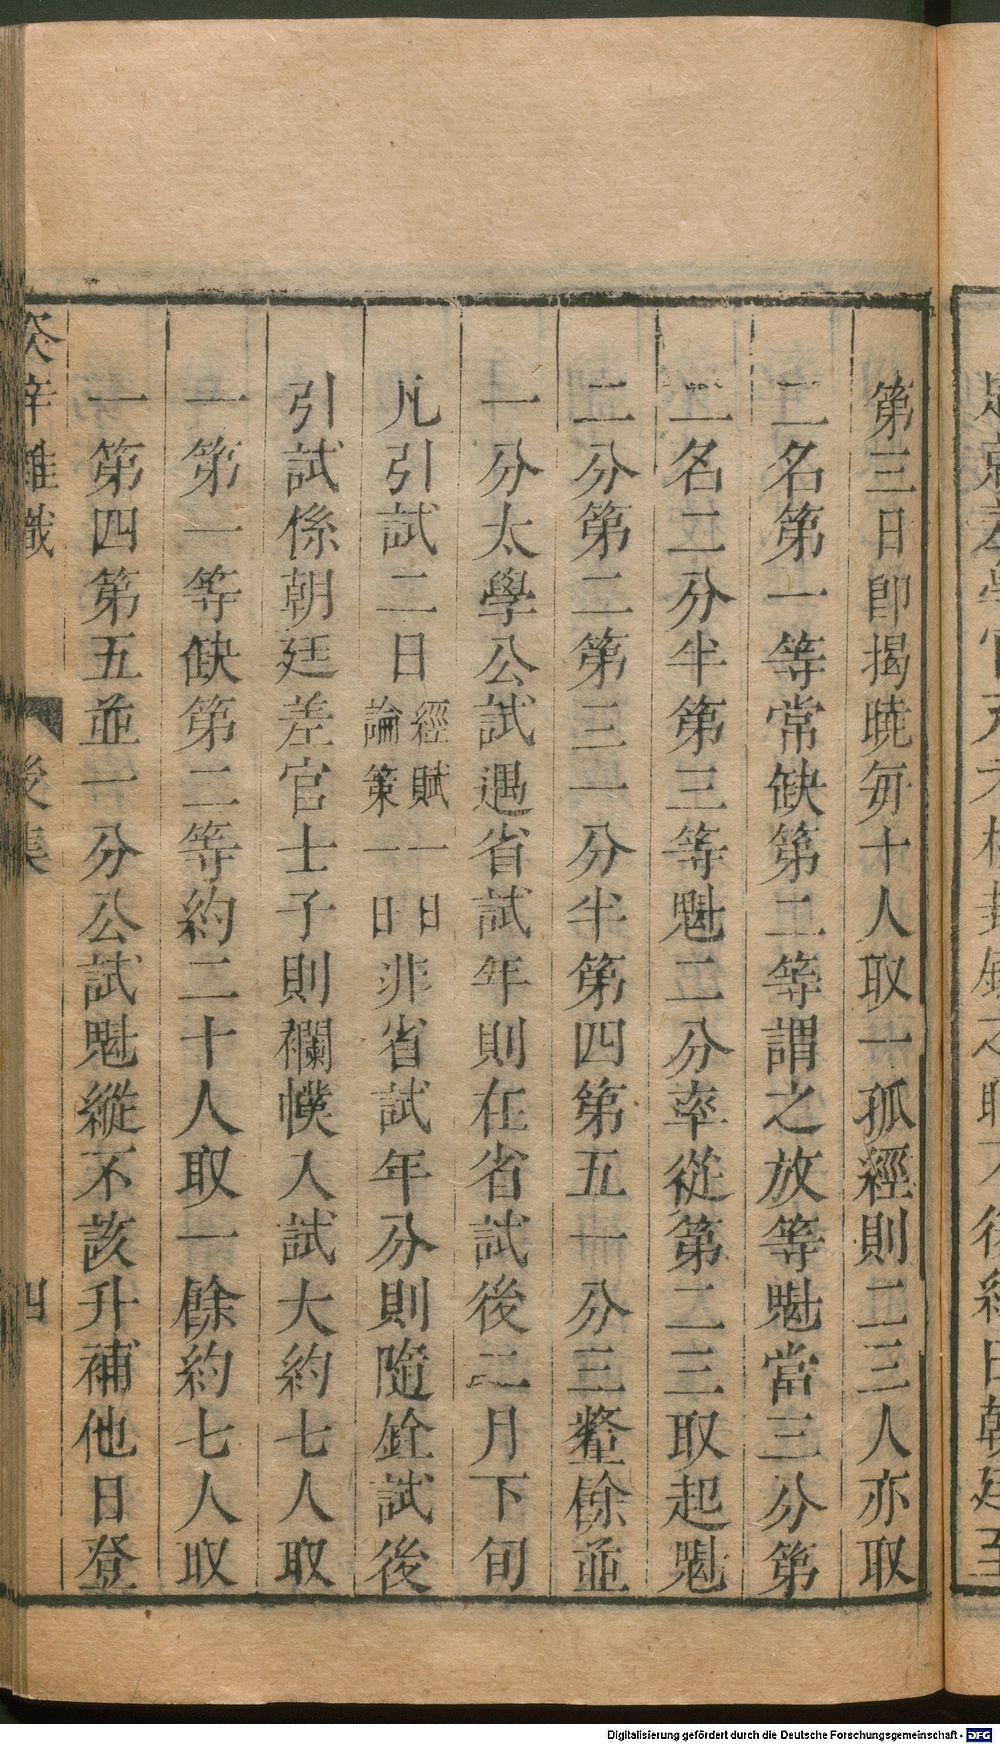 第三日卽揭曉每十人取一孤經則二三人亦取
二名第一等常缺第二等謂之放等魁當三分第
二名二分半第三等魁二分率從第二三取起魁
二分第二第三一分半第四第五一分三釐餘並
一分太學公試遇省試年則在省試後二月下旬
凡引試二日經賦一日論策一日非省試年分則隨銓試後
引試係朝廷差官士子則襴幞入試大約七人取
一第一等缺第二等約二十人取一餘約七人取
一第四第五並一分公試魁縱不該升補他日登
癸辛雜識 後集 四
Digitalisierung gefördert durch die Deutsche Forschungsgemeinschaft - DFG